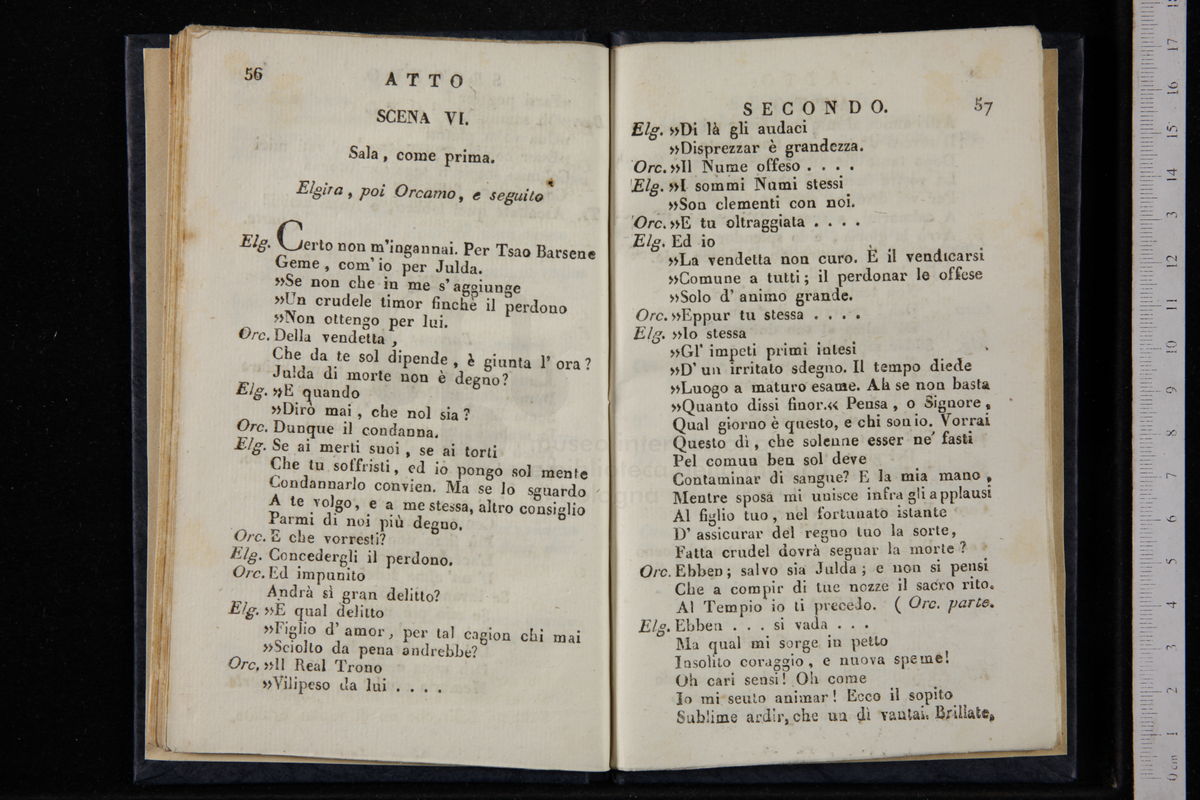 56
ATTO
SCENA VI.
Sala, come prima.
Elgira, poi Orcamo, e seguito
Elg. Certo non m'ingannai. Per Tsao Barsene
Geme, com' io per Julda.
»Se non che in me s'aggiunge
»Un crudele timor finchè il perdono
»Non ottengo per lui.
Orc. Della vendetta,
Che da te sol dipende, è giunta l' ora?
Julda di morte non è degno?
Elg. »E quando
»Dirò mai, che nol sia?
Orc. Dunque il condanna.
Elg. Se ai merti suoi, se ai torti
Che tu soffristi, ed io pongo sol mente
Condannarlo convien. Ma se lo sguardo
A te volgo, e a me stessa, altro consiglio
Parmi di noi più degno.
Orc. E che vorresti?
Elg. Concedergli il perdono.
Orc. Ed impunito
Andrà sì gran delitto?
Elg. »E qual delitto
»Figlio d' amor, per tal cagion chi mai
»Sciolto da pena andrebbe?
Orc. »Il Real Trono
»Vilipeso da lui . . . .
SECONDO.
57
Elg. »Di là gli audaci
»Disprezzar è grandezza.
Orc. »Il Nume offeso . . . .
Elg. »I sommi Numi stessi
»Son clementi con noi.
Orc. »E tu oltraggiata . . . .
Elg. Ed io
»La vendetta non curo. E il vendicarsi
»Comune a tutti; il perdonar le offese
»Solo d' animo grande.
Orc. »Eppur tu stessa . . . .
Elg. »Io stessa
»Gl' impeti primi intesi
»D' un irritato sdegno. Il tempo diede
»Luogo a maturo esame. Ah se non basta
»Quanto dissi finor.« Pensa, o Signore,
Qual giorno è questo, e chi son io. Vorrai
Questo dì, che solenne esser ne' fasti
Pel comun ben sol deve
Contaminar di sangue? E la mia mano,
Mentre sposa mi unisce infra gli applausi
Al figlio tuo, nel fortunato istante
D' assicurar del regno tuo la sorte,
Fatta crudel dovrà segnar la morte?
Orc. Ebben; salvo sia Julda; e non si pensi
Che a compir di tue nozze il sacro rito.
Al Tempio io ti precedo. ( Orc. parte.
Elg. Ebben . . . si vada . . .
Ma qual mi sorge in petto
Insolito coraggio, e nuova speme!
Oh cari sensi! Oh come
Io mi sento animar! Ecco il sopito
Sublime ardir, che un dì vantai. Brillate,